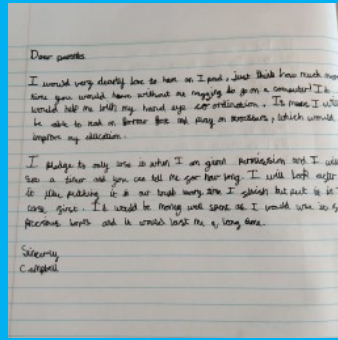 Dear parents
I would very dearly love to have an I pad, Just think how much mo
time you would have without me nagging to go on a computer! It
would help me with my hand eye co ordination. It means I wil
be able to read on and play on , which would
improve my education.
I pledge to only use it when I am given permission and I will
set a timer and you can tell me for how long. I will look after
it like putting it in our trust every time I finish but put it in i
case first. It would be money well spent as I would use it
and it would last me a long time.
Sincerely
Campbell